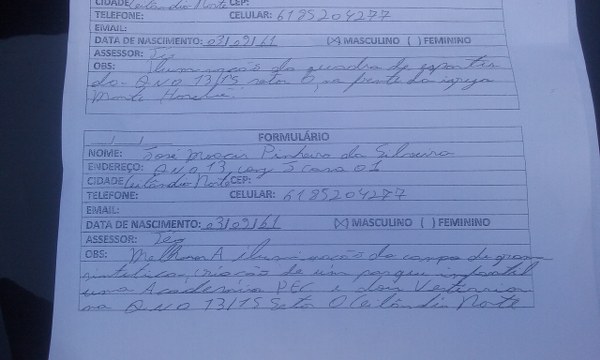 CIDADE Ceilândia Norte CEP:
TELEFONE: CELULAR: 6185204277
EMAIL:
DATA DE NASCIMENTO: 03/09/61 (X) MASCULINO ( ) FEMININO
ASSESSOR:
OBS: Iluminação da quadra de esportes
da QNO 13/15 setor O, na frente da igreja
Monte
FORMULÁRIO
NOME: José Moacir Pinheiro da Silveira
ENDEREÇO: QNO 13 conj J casa 01
CIDADE Ceilândia Norte CEP:
TELEFONE: CELULAR: 6185204277
EMAIL:
DATA DE NASCIMENTO: 03/09/61 (X) MASCULINO ( ) FEMININO
ASSESSOR:
OBS: Melhora A iluminação do campo de grama
sintetica, criação de um parque infantil
uma Academia PEC e dois Vestiarios
na QNO 13/15 Setor O Ceilândia Norte